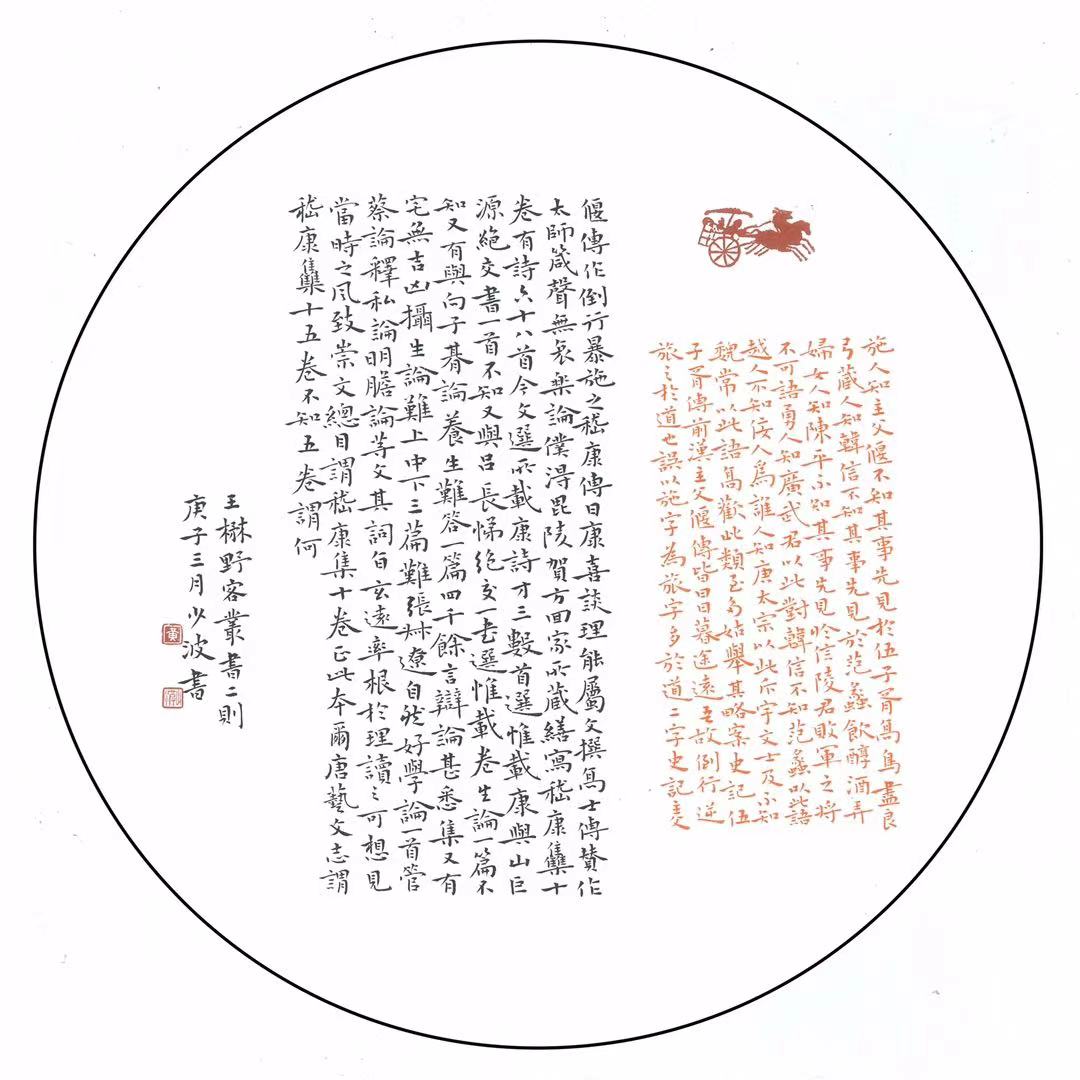 施人知主父偃不知其事先見於伍子胥鳥盡良
弓藏人知韓信不知其事先見於范蠡飲醇酒弄
婦女人知陳平不知其事先見於信陵君敗軍之將
不可語勇人知廣武君以此對韓信不知范蠡以此語
越人不知佞人為誰人知唐太宗以此斥宇文士及不知
魏常以此語高歡此類至多姑舉其略案史記伍
子胥傳前漢主父偃傳皆曰日暮途遠吾故倒行逆
旅之於道也誤以施字為旅字多於道二字史記主父
偃傳作倒行暴施之嵇康傳曰康喜談理能屬文撰士傳贊作
太師箴聲無哀樂論僕得毘陵賀方回家所藏繕寫嵇康集十
卷有詩六十八首今文選所載康詩才三數首選惟載康與山巨
源絕交書一首不知又與呂長悌絕交一書選惟載養生論一篇不
知又有與向子朞論養生難答一篇四千餘言辯論甚悉集又有
宅無吉凶攝生論難上中下三篇難張叔遼自然好學論一首管
蔡論釋私論明膽論等文其詞旨玄遠率根於理讀之可想見
當時之風致崇文總目謂嵇康集十卷正此本爾唐藝文志謂
嵇康集十五卷不知五卷謂何
王楙野客叢書二則
庚子三月少波書
黃